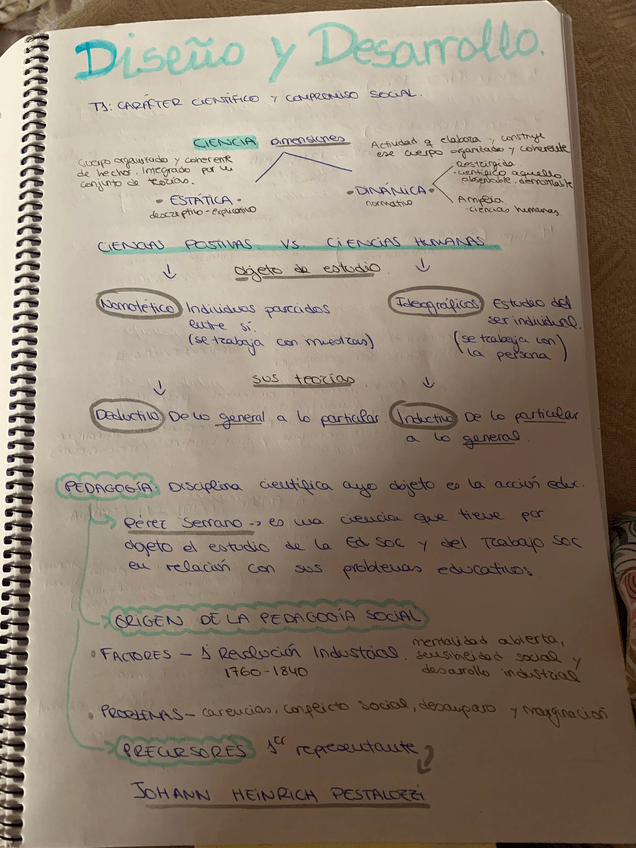 Diseño y Desarrollo.
T1: CARÁCTER CIENTÍFICO Y COMPROMISO SOCIAL.
CIENCIA dimensiones
Cuerpo organizado y coherente
de hechos. Integrado por un
conjunto de teorías.
• ESTÁTICA •
descriptivo - explicativo
Actividad q elabora y construye
ese cuerpo organizado y coherente
• DINÁMICA •
normativo
Restringida
- científico aquello
observable, demostrable
Amplia
- ciencias humanas
CIENCIAS POSITIVAS VS CIENCIAS HUMANAS
objeto de estudio
Nomotético Individuos parecidos
entre sí.
(se trabaja con muestras)
Ideográficos Estudio del
ser individual.
(se trabaja con
la persona)
sus teorías
Deductivo De lo general a lo particular
Inductivo De lo particular
a lo general.
PEDAGOGÍA: Disciplina científica cuyo objeto es la acción educ.
Pérez Serrano -> es una ciencia que tiene por
objeto el estudio de la Ed Soc y del Trabajo Soc
en relación con sus problemas educativos
ORIGEN DE LA PEDAGOGÍA SOCIAL
• FACTORES - 1ª Revolución Industrial.
1760-1840
mentalidad abierta,
sensibilidad social y
desarrollo industrial
• PROBLEMAS - carencias, conflicto social, desamparo y marginación
PRECURSORES 1er representante
JOHANN HEINRICH PESTALOZZI